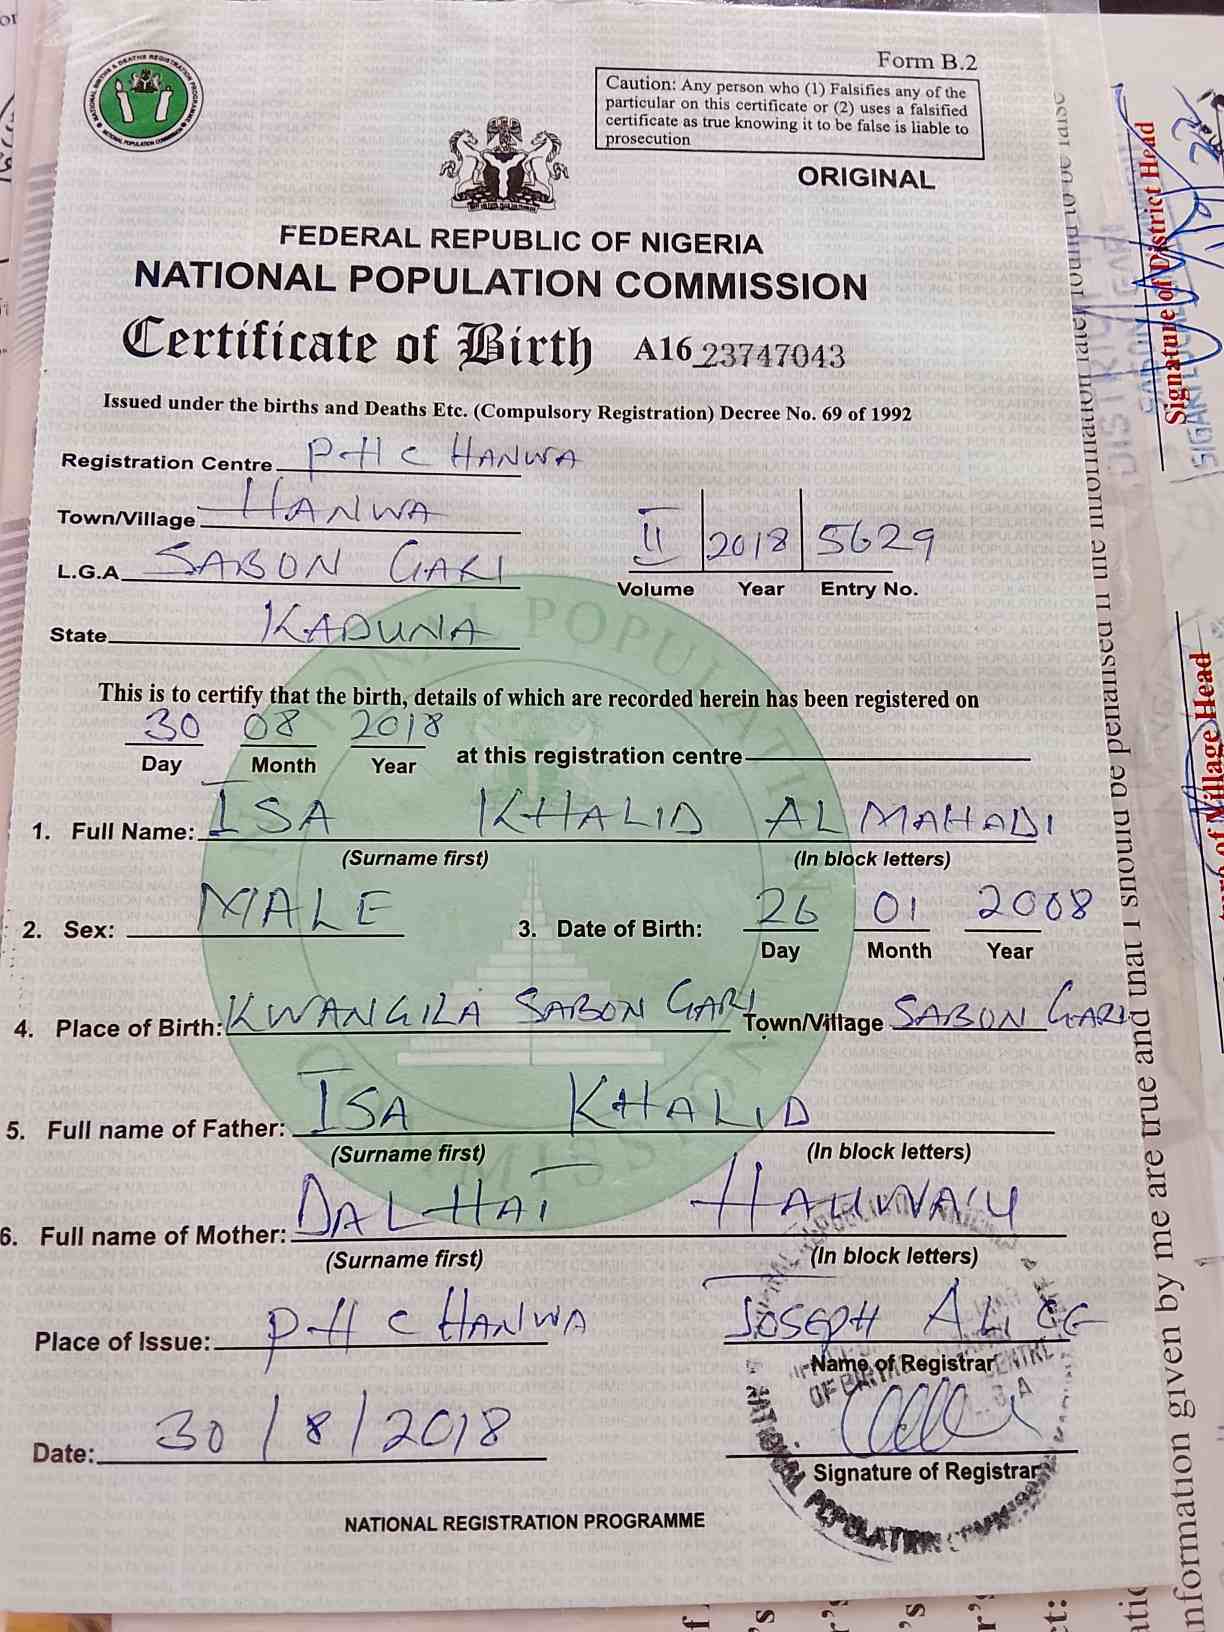 Form B.2
NATIONAL BIRTHS & DEATHS REGISTRATION PROGRAMME
NATIONAL POPULATION COMMISSION
Caution: Any person who (1) Falsifies any of the
particular on this certificate or (2) uses a falsified
certificate as true knowing it to be false is liable to
prosecution
ORIGINAL
FEDERAL REPUBLIC OF NIGERIA
NATIONAL POPULATION COMMISSION
Certificate of Birth A16 23747043
Issued under the births and Deaths Etc. (Compulsory Registration) Decree No. 69 of 1992
Registration Centre PHC HANWA
Town/Village HANWA
II 2018 5629
L.G.A SABON GARI
Volume Year Entry No.
State KADUNA
This is to certify that the birth, details of which are recorded herein has been registered on
30 08 2018
Day Month Year at this registration centre
1. Full Name: ISA KHALID AL MAHADI
(Surname first) (In block letters)
2. Sex: MALE 3. Date of Birth: 26 01 2008
Day Month Year
4. Place of Birth: KWANGILA SABON GARI Town/Village SABON GARI
5. Full name of Father: ISA KHALID
(Surname first) (In block letters)
6. Full name of Mother: DALHAT HAUWA'U
(Surname first) (In block letters)
Place of Issue: PHC HANWA JOSEPH ALICE
Name of Registrar
Date: 30/8/2018
Signature of Registrar
NATIONAL REGISTRATION PROGRAMME
NATIONAL POPULATION COMMISSION
Signature of District Head
of Village Head
information given by me are true and that I should be penalised if the information later found to be false